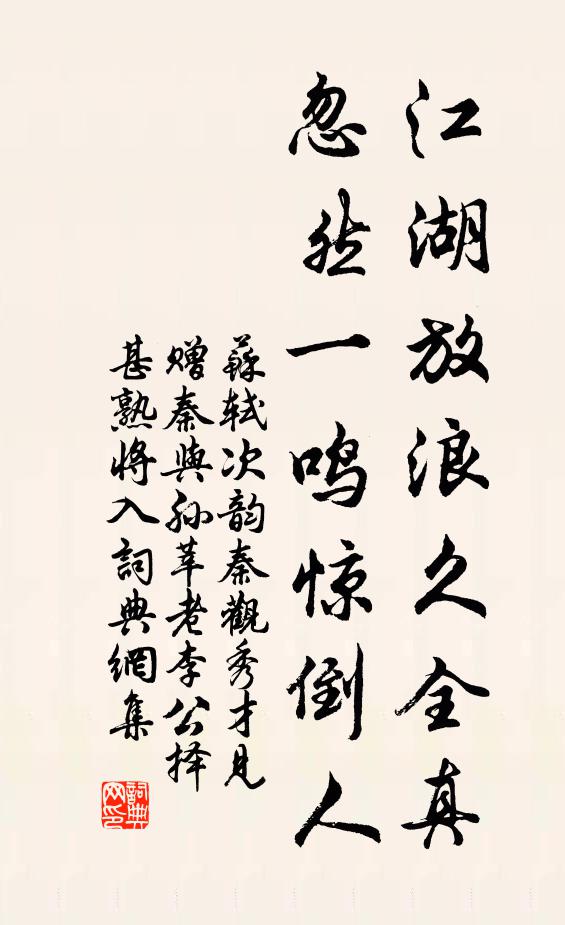 江湖放浪久全真
忽然一鸣惊倒人
蘇轼次韵秦觀秀才見
赠秦與孙莘老李公择
甚熟将入詞典網集
詞典网印